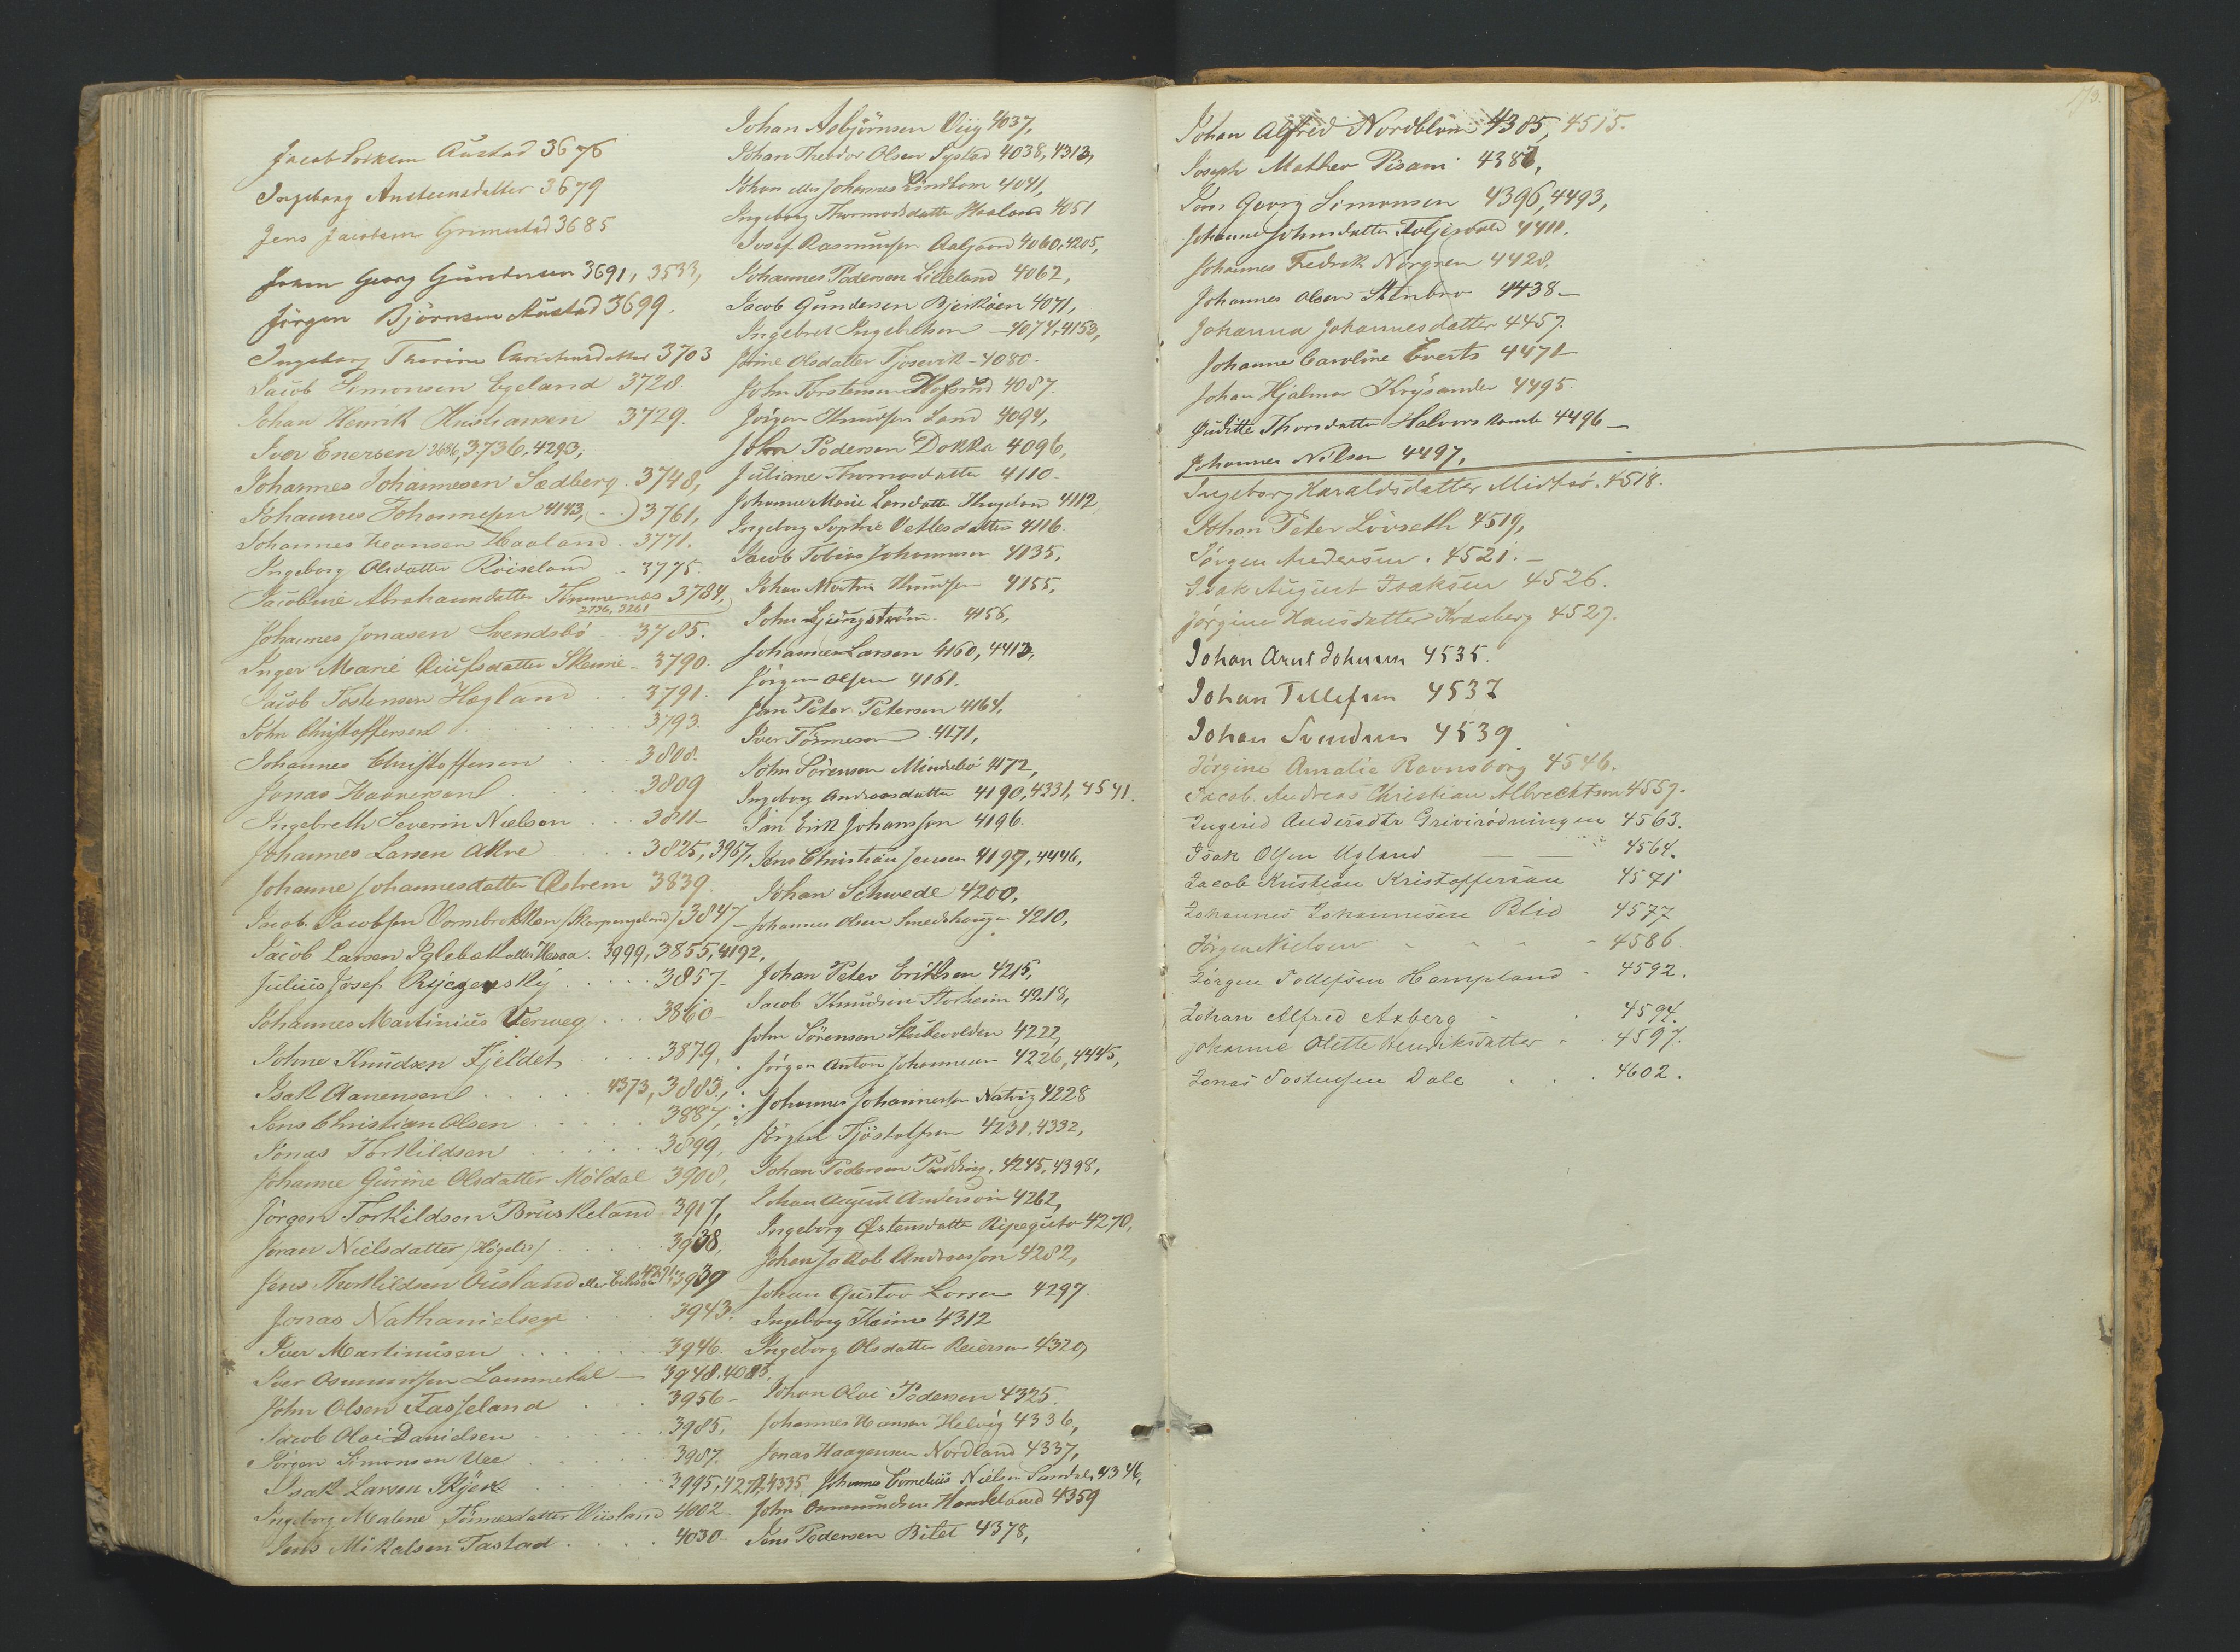 Jacob Austad 3676
Ingeborg Ansteensdatter 3679
Jens Jacobsen Grimestad 3685
Georg Gundersen 3691, 3533,
Jörgen Björnsen Austad 3699.
Ingeborg Thorine Christensdatter 3703
Jacob Simonsen Egeland 3728.
Johan Henrik Kristiansen 3729.
Iver Enersen 2656, 3736, 4293,
Johannes Johannesen Sædberg. 3748,
Johannes Johannesen 4143, 3761,
Johannes Hansen Haaland. 3771.
Ingeborg Olsdatter Röiseland 3775.
Jacobine Abrahamsdatter Tömmernæs 3784,
2736, 3261
Johannes Jonasen Svendsbö 3785.
Inger Marie 3790.
Jacob Tostensen Hægland 3791.
John Christoffersen 3793.
Johannes Christoffersen 3808.
Jonas Haaversen 3809
Ingebreth Severin Nielsen 3811-
Johannes Larsen Akre 3825, 3967,
Johanne Johannesdatter Östrem 3839.
Jacob Jacobsen Vornebrekken /Skarpengeland/ 3847-
Jacob Larsen Iglebæk eller Hessaa. 3999, 3855, 4192,
Julius Josef 3857-
Johannes Martinius Verweg 3860-
Johne Knudsen Fjeldet 3879,
Isak Aanensen 4373, 3883,
Jens Christian Olsen 3887,
Jonas Torkildsen 3899,
Johanne Gurine Olsdatter Möldal 3908,
Jörgen Torkildsen Bruskeland 3917,
Joran Nielsdatter /Högelis/ 3938,
Jens Thorkildsen Ousland eller 3939
Jonas Nathanielsen 3943.
Iver Martinusen 3946.
Iver Osmundsen Lammedal 3948. 4085.
John Olsen Fasseland 3956-
Jacob Olai Danielsen 3985,
Jörgen Simonsen Uee 3987.
Isak Larsen 3995, 4274, 4335
Ingeborg Malene Tönnesdatter Viisland 4002.
Jens Mikalsen Tastad 4030-
Johan Asbjörnsen Viig 4037,
Johan Theodor Olsen Systad 4038, 4313,
Johan eller Johannes Lindbom 4041,
Ingeborg Thormodsdatter Haaland 4051
Josef Rasmussen Aalgaard 4060, 4205,
Johannes Pedersen Lilleland 4062,
Jacob Gundersen Bjerkåen 4071,
Ingebret Ingebretsen 4074, 4153,
Jorine Olsdatter Tjosevik 4080-
John Torstensen 4087.
Jörgen Knudsen Sand 4094,
John Pedersen Dokka 4096,
Juliane Thomasdatter 4110-
Johanne Marie Larsdatter 4112
Ingeborg Sophie Vetlesdatter 4116.
Jacob Tobias Johannesen 4135,
Johan Martin Knudsen 4155,
John Ljungström 4156,
Johannes Larsen 4160, 4413,
Jörgen Olsen 4161.
Jan Peter Petersen 4164,
Iver Tönnesen 4171,
John Sörensen Mindebö 4172,
Ingeborg Andreasdatter 4190, 4331, 4541.
Jan Erik Johansson 4196.
Jens Christian Jensen 4197, 4446,
Johan Schwede 4200,
Johannes Olsen Smedshaugen 4210,
Johan Peter Eriksen 4215,
Jacob Knudsen Storheim 4218,
John Sörensen Skibevolden 4222,
Jörgen Anton Johannesen 4226, 4445,
Johannes Johannessen Natvig 4228
Jörgen Tjöstolfsen 4231, 4332,
Johan Pedersen Pudding. 4245, 4398,
Johan August Anderson 4262,
Ingeborg Östensdatter Ripegutu 4270,
Johan Jakob Andreasson 4282,
Johan Gustav Larsen 4297.
Ingeborg Heime 4312
Ingeborg Olsdatter Reiersen 4320,
Johan Olai Pedersen 4325.
Johannes Hansen Helvig 4336,
Jonas Haagensen Nordland 4337,
Johannes Cornelius Nielsen Sandal, 4346,
John Osmundsen Handeland 4359
Jens Pedersen Bilet 4378,
173.
Johan Alfred Nordblom 4385, 4515.
Joseph Matheo Pisani 4387,
Jens Georg Simonsen 4396, 4493,
Johanne Johnsdatter 4411.
Johannes Fredrik Norgren 4428,
Johannes Olsen Stenbro 4438-
Johanna Johannesdatter 4457.
Johanne Caroline Everts 4471-
Johan Hjalmar Krysander 4495.
Juditte Thorsdatter 4496-
Johannes Nilsen 4497,
Ingeborg Haraldsdatter Midtsö. 4518.
Johan Peter Lövseth 4519,
Jörgen Andersen. 4521.-
Isak August Isaksen 4526.
Jörgine Hansdatter Krasberg 4527.
Johan Arnt Johnsen 4535.
Johan Tellefsen 4537
Johan Svendsen 4539
Jörgine Amalie Ravnsborg 4546.
Jacob Andreas Christian Albrechtson 4559.
Ingerid Andersdtr Grivirödningen 4563.
Isak Olsen Ugland 4564.
Jacob Kristian Kristoffersen 4571
Johannes Johannesen Blid 4577
Jörgen Nielsen 4586.
Jörgen Tollefsen Hampland 4592.
Johan Alfred Axberg 4594.
Johanne Olette Henriksdatter 4597.
Jonas Tostensen Dale 4602.